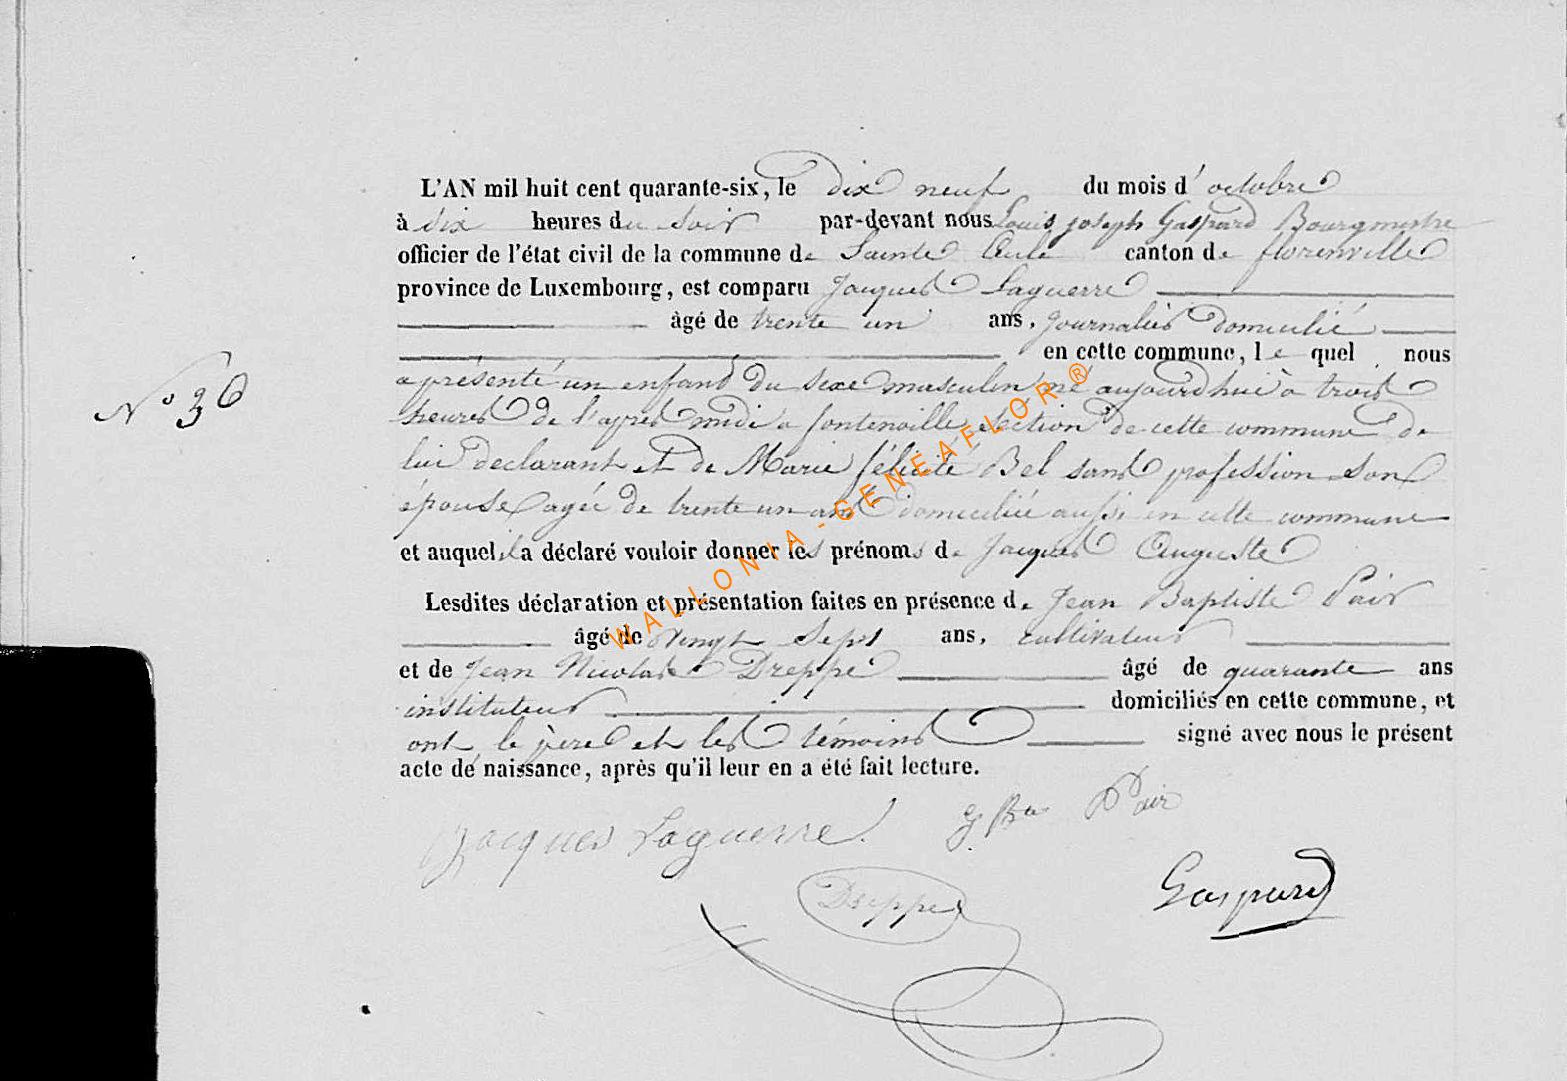 L'AN mil huit cent quarante-six, le dix neuf du mois d'octobre
à six heures du soir par-devant nous Louis joseph Gaspard Bourgmestre
officier de l'état civil de la commune de Sainte Cécile canton de florenville
province de Luxembourg, est comparu Jacques Laguerre
âgé de trente un ans, journalier domicilié
en cette commune, le quel nous
N° 36
a présenté un enfant du sexe masculin né aujourd'hui à trois
heures de l'apres midi a fontenoille section de cette commune de
lui declarant et de Marie félicité Bel sans profession son
épouse agée de trente un ans domiciliée aussi en cette commune
et auquel il a déclaré vouloir donner les prénoms de Jacques Auguste
Lesdites déclaration et présentation faites en présence de Jean Baptiste Pair
âgé de vingt sept ans, cultivateur
et de Jean Nicolas Dreppe âgé de quarante ans
instituteur domiciliés en cette commune, et
ont le père et les témoins signé avec nous le présent
acte de naissance, après qu'il leur en a été fait lecture.
Jacques Laguerre J Bte Pair
Dreppe Gaspard
WALLONIA - GENEAFLOR ®